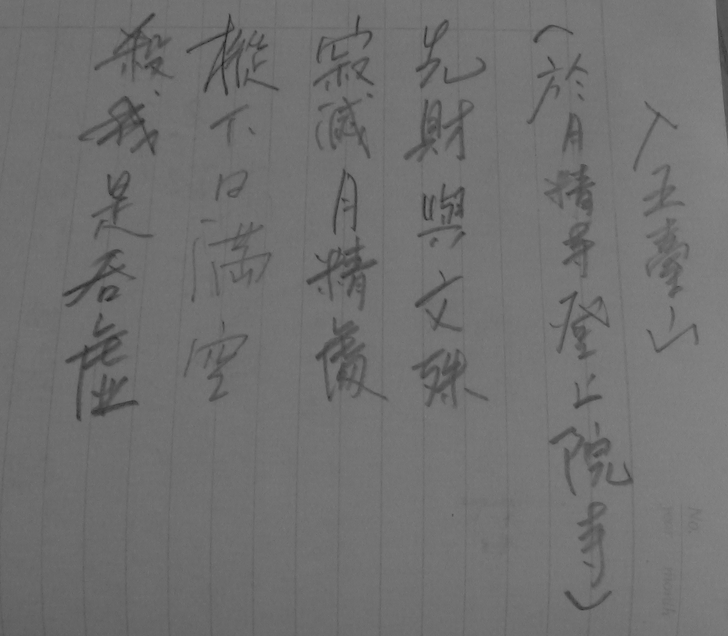 入五臺山
(於月精寺登上院寺)
先財與文殊
寂滅月精
樅下日滿空
殺我是吞虛